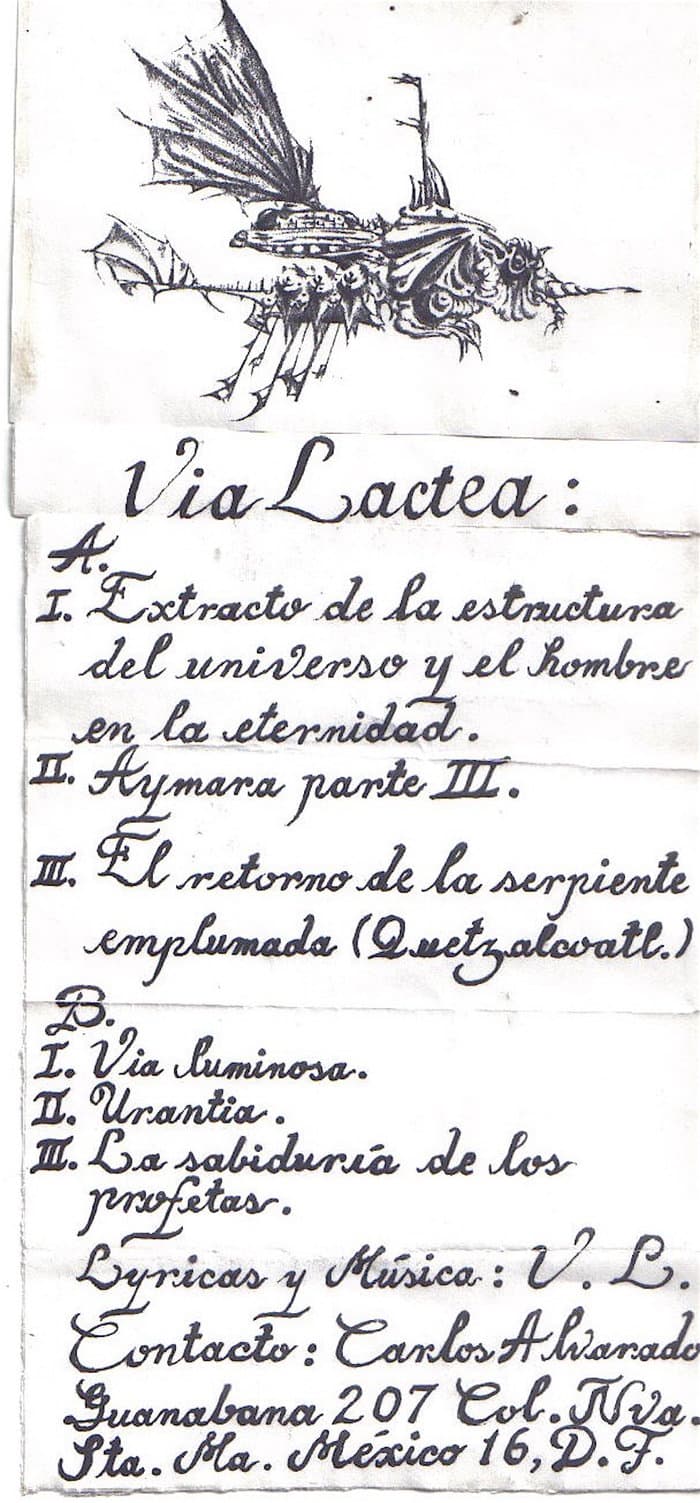 Via Lactea:
A.
I. Extracto de la estructura
del universo y el hombre
en la eternidad.
II. Aymara parte III.
III. El retorno de la serpiente
emplumada (Quetzalcoatl.)
B.
I. Via luminosa.
II. Urantia.
III. La sabiduría de los
profetas.
Lyricas y Música: V. L.
Contacto: Carlos Alvarado
Guanabana 207 Col. Nva.
Sta. Ma. México 16, D. F.